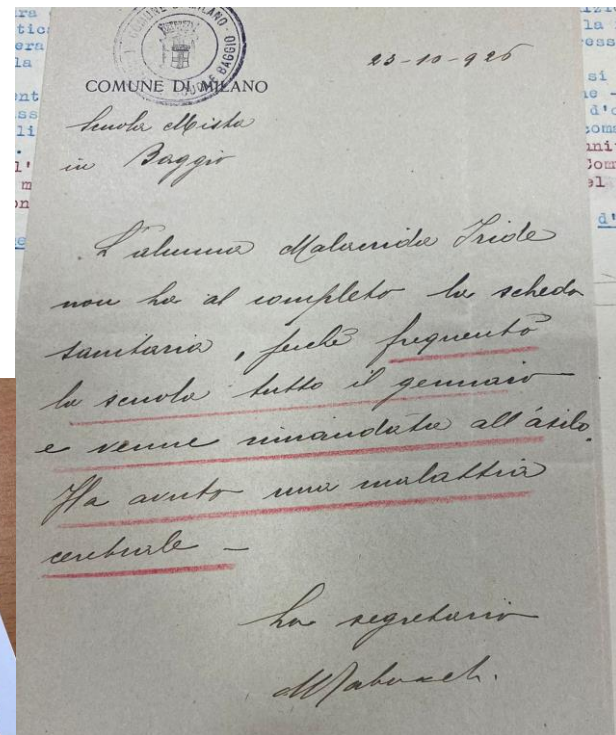 COMUNE DI MILANO
23-10-926
COMUNE DI MILANO
Scuola Mista
in Baggio
L'alunna Malacrida Iride
non ha al completo la scheda
sanitaria, perchè frequentò
la scuola tutto il gennaio
e venne rimandata all'asilo.
Ha avuto una malattia
cerebrale -
La segretaria